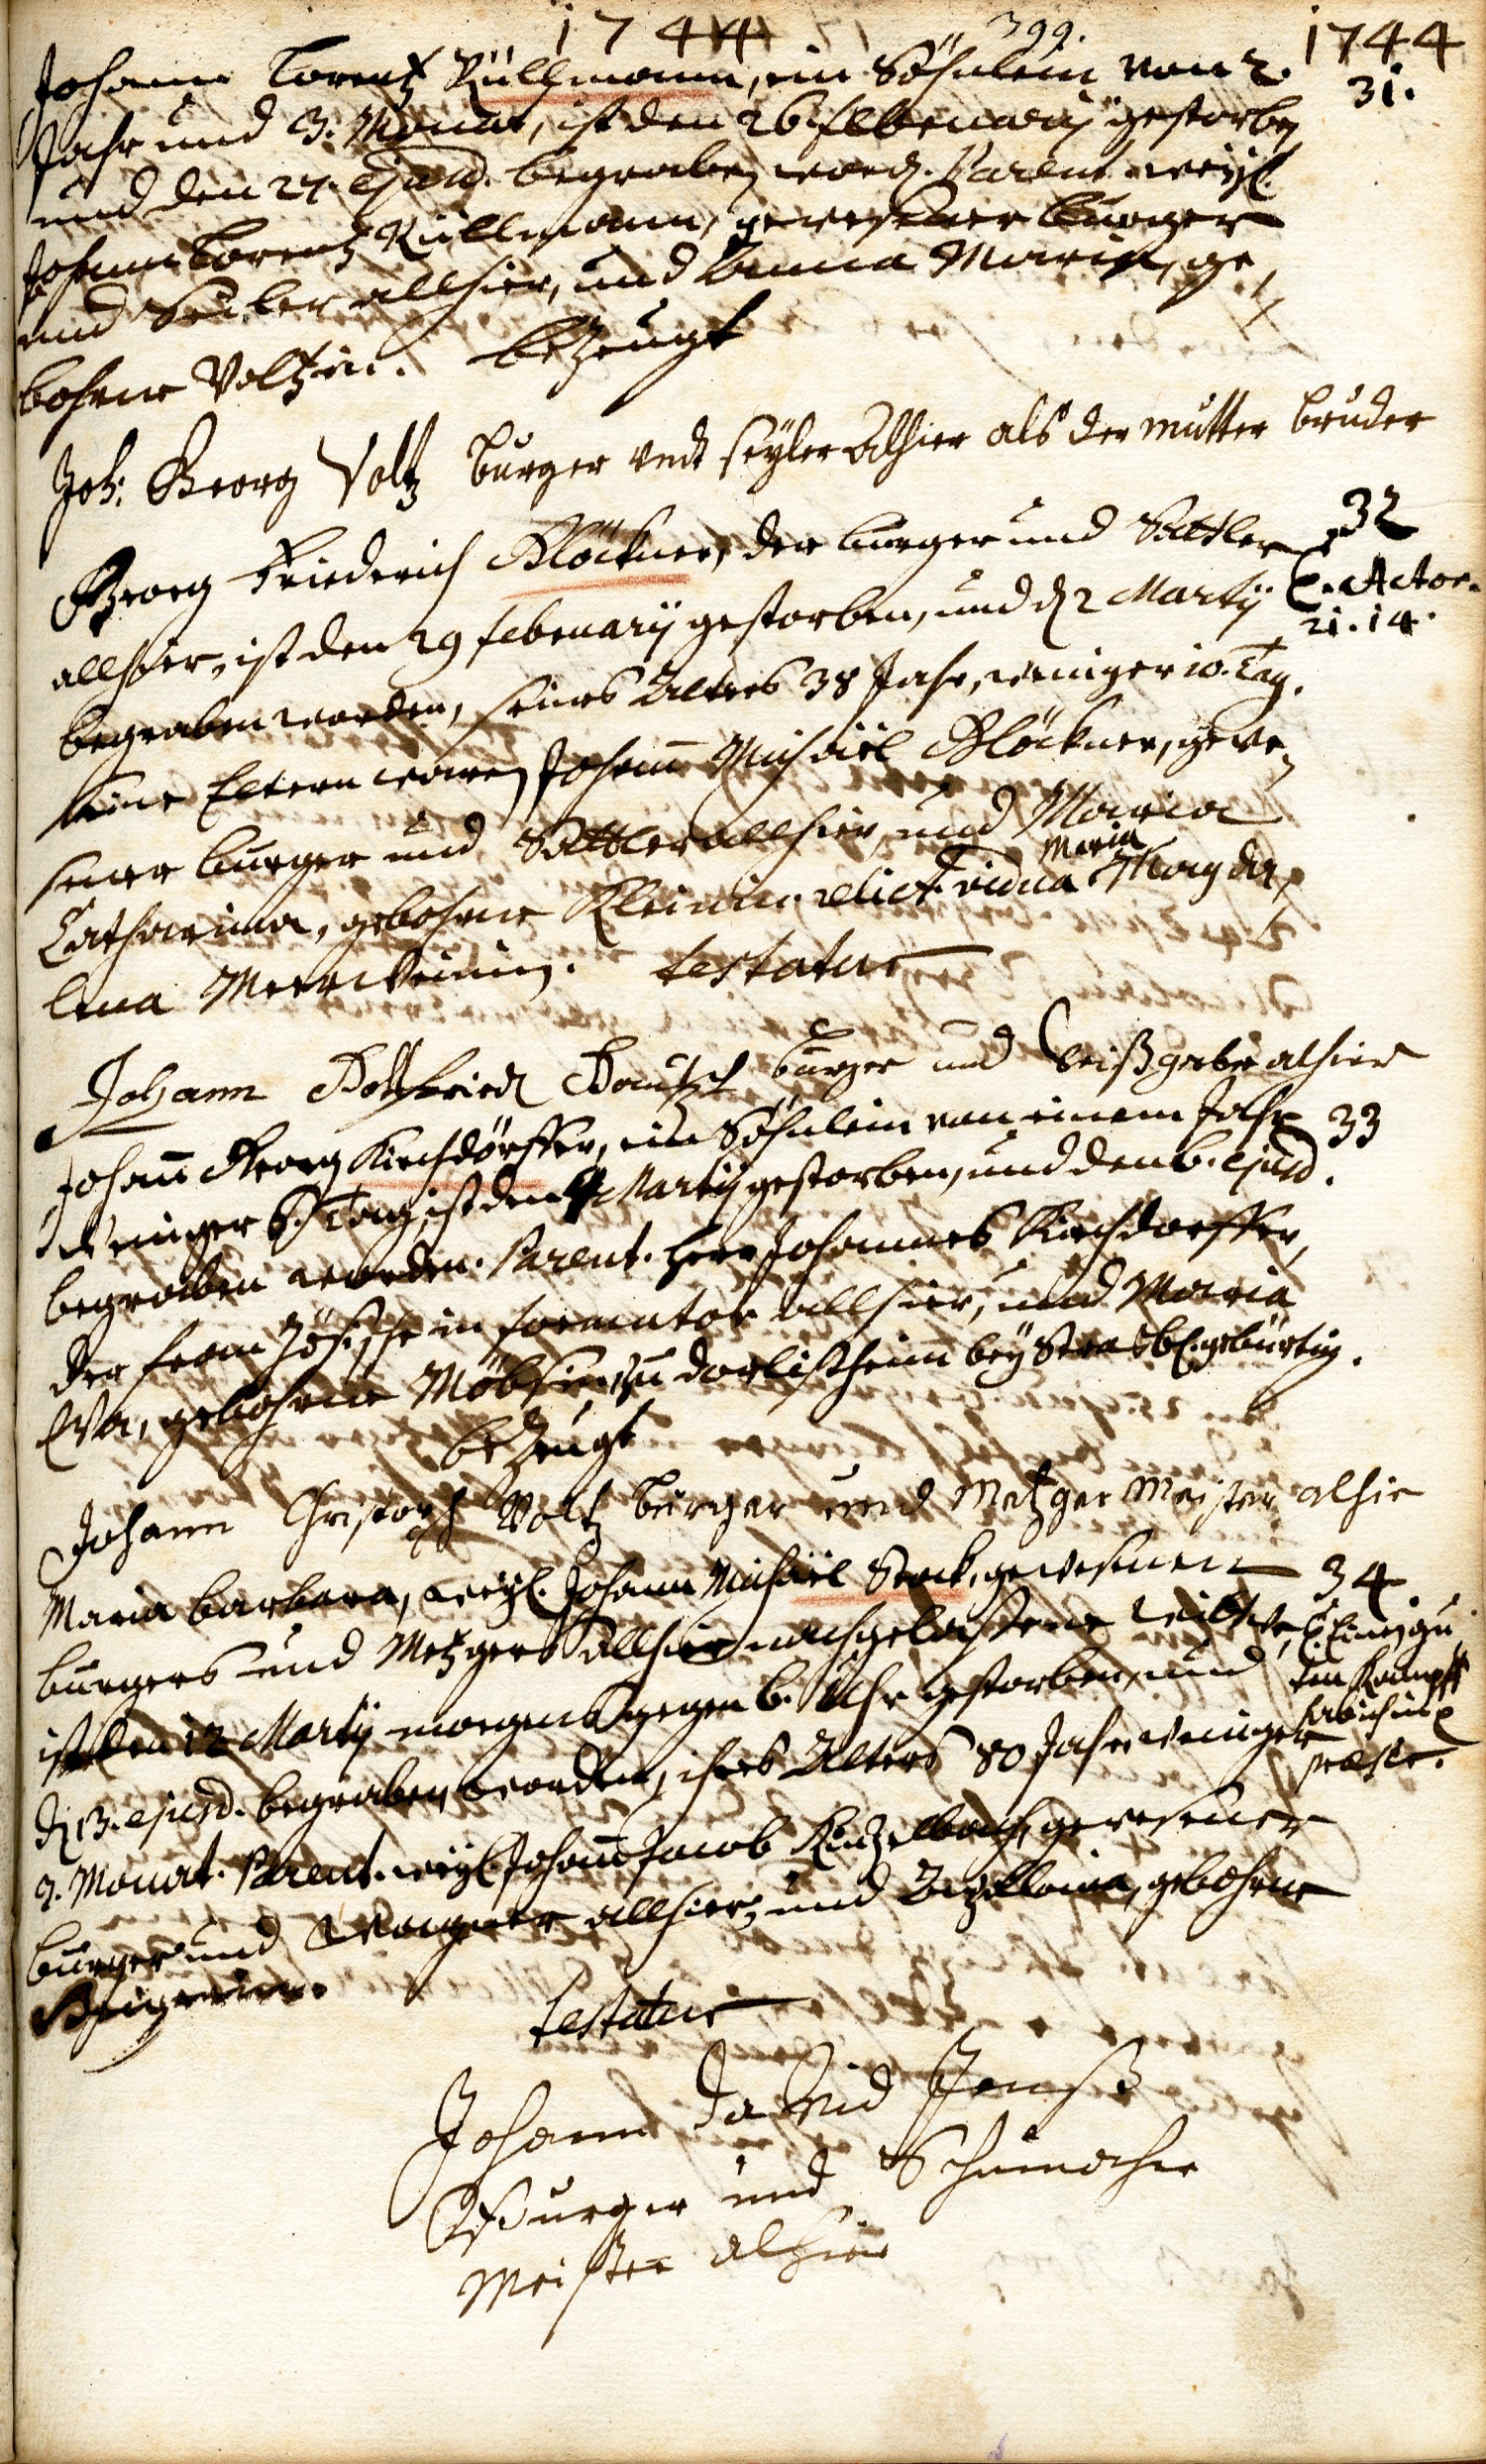 1744 399. 1744
Johann Lorentz Küllmann, ein Söhnlein von 2. 31.
Jahr und 3. Monat, ist den 26. Februarij gestorben
und den 27. ejusd. begraben word. Parent. weyl.
Johann Lorentz Küllmann, gewesener burger
und Seiler allhier, und Anna Maria, ge-
bohrne Voltzin. bezeugt
Joh: Georg Voltz burger undt seyler Alhier als der mutter bruder
Georg Friederich Klöckner, der burger und Sattler 32
allhier, ist den 29 februarij gestorben, und d 2 Martij Actor.
21. 14.
begraben worden, seines Alters 38 Jahr, weniger 10. Tag.
seine Eltern waren Johann Michaël Klöckner, gewe-
sener burger und Sattler allhier, und Maria
Catharina, gebohrne Kleinin. relict. vidua Maria Magda-
lena Meerweinin. testatur
Johann Gottfried burger und Weißgerber alhier
Johann Georg Kirchdörffer, ein Söhnlein von einem Jahr 33
weniger 8. Tag, ist den 4 Martij gestorben, und den 6. ejusd.
begraben worden. Parent. herr Johannes Kirchdoerffer,
der französische informator allhier, und Maria
Eva, gebohrne zu Dorlißheim bey Strasb. gebürtig.
bezeugt
Johann Christoph Voltz burger und Metzger Meister alhie
Maria Barbara, weyl. Johann Michaël Stock, gewesenen 34
burgers und Metzgers allhier nachgelassene wittwe,
ist den 12 Martij morgens gegen 6. Uhr gestorben, und
d 13. ejusd. begraben worden, ihres Alters 80 Jahr weniger
2. Monat. Parent. weyl. Johann Jacob gewesener
burger und Wagner allhier, und gebohrne
testatur
Johann David
Burger und Schumacher
Meister alhier